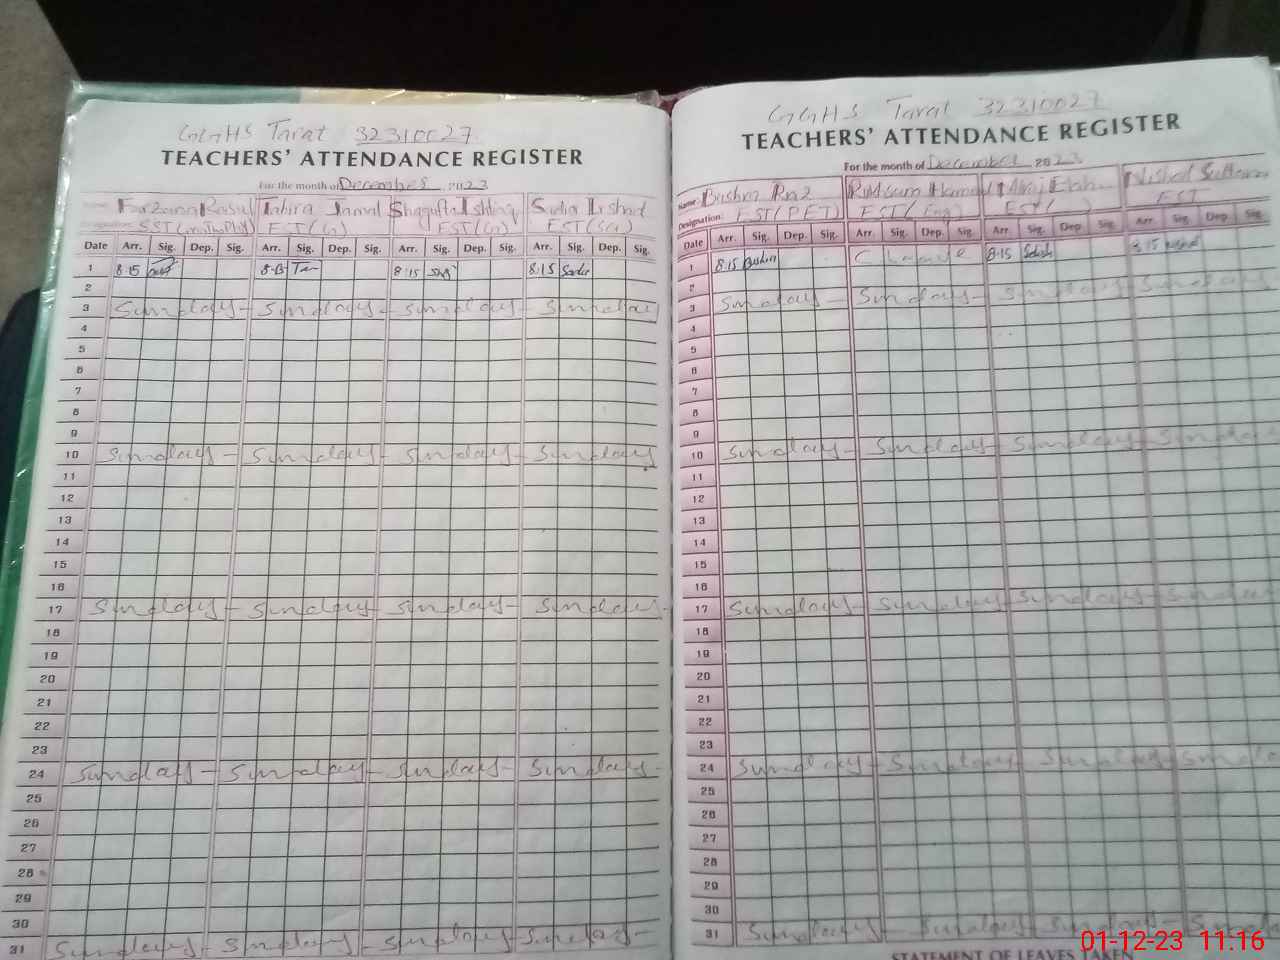 GGHS Tarat 32310027
TEACHERS' ATTENDANCE REGISTER
For the month of December 2023
Farzana Rasul Tahira Jamal Shagufta Ishtiaq Sadia Irshad
SST EST EST EST
Date Arr. Sig. Dep. Sig. Arr. Sig. Dep. Sig. Arr. Sig. Dep. Sig. Arr. Sig. Dep. Sig.
1 8:15 8:15 8:15 8:15 Sadia
2
3 Sunday - Sunday - Sunday - Sunday
4
5
6
7
8
9
10 Sunday - Sunday - Sunday - Sunday
11
12
13
14
15
16
17 Sunday - Sunday - Sunday - Sunday -
18
19
20
21
22
23
24 Sunday - Sunday - Sunday - Sunday -
25
26
27
28
29
30
31 Sunday - Sunday - Sunday - Sunday -
GGHS Tarat 32310027
TEACHERS' ATTENDANCE REGISTER
For the month of December 2023
Name: Bushra Sultana
Designation: EST (PET) EST (Eng) EST EST
Date Arr. Sig. Dep. Sig. Arr. Sig. Dep. Sig. Arr. Sig. Dep Sig. Arr. Sig. Dep. Sig.
1 8:15 Bushra 8:15 8:15
2
3 Sunday - Sunday - Sunday - Sunday
4
5
6
7
8
9
10 Sunday - Sunday - Sunday - Sunday
11
12
13
14
15
16
17 Sunday - Sunday - Sunday - Sunday
18
19
20
21
22
23
24 Sunday - Sunday - Sunday - Sunday
25
26
27
28
29
30
31 Sunday - Sunday - Sunday - Sunday
STATEMENT OF LEAVES TAKEN
01-12-23 11:16